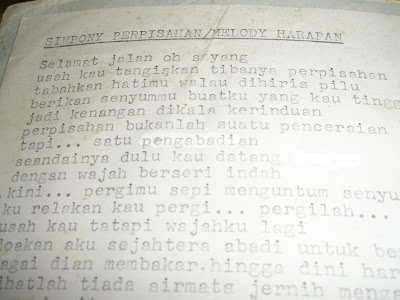 SIMPONY PERPISAHAN/MELODY HARAPAN
Selamat jalan oh sayang
usah kau tangiskan tibanya perpisahan
tabahkan hatimu walau dihiris pilu
berikan senyummu buatku yang kau tingg
jadi kenangan dikala kerinduan
perpisahan bukanlah suatu penceraian
tapi... satu pengabadian
seandainya dulu kau datang
dengan wajah berseri indah
kini... pergimu sepi menguntum senyu
ku relakan kau pergi... pergilah...
usah kau tatapi wajahku lagi
doakan aku sejahtera abadi untuk be
agai dian membakar hingga dini har
ihatlah tiada airmata jernih menga